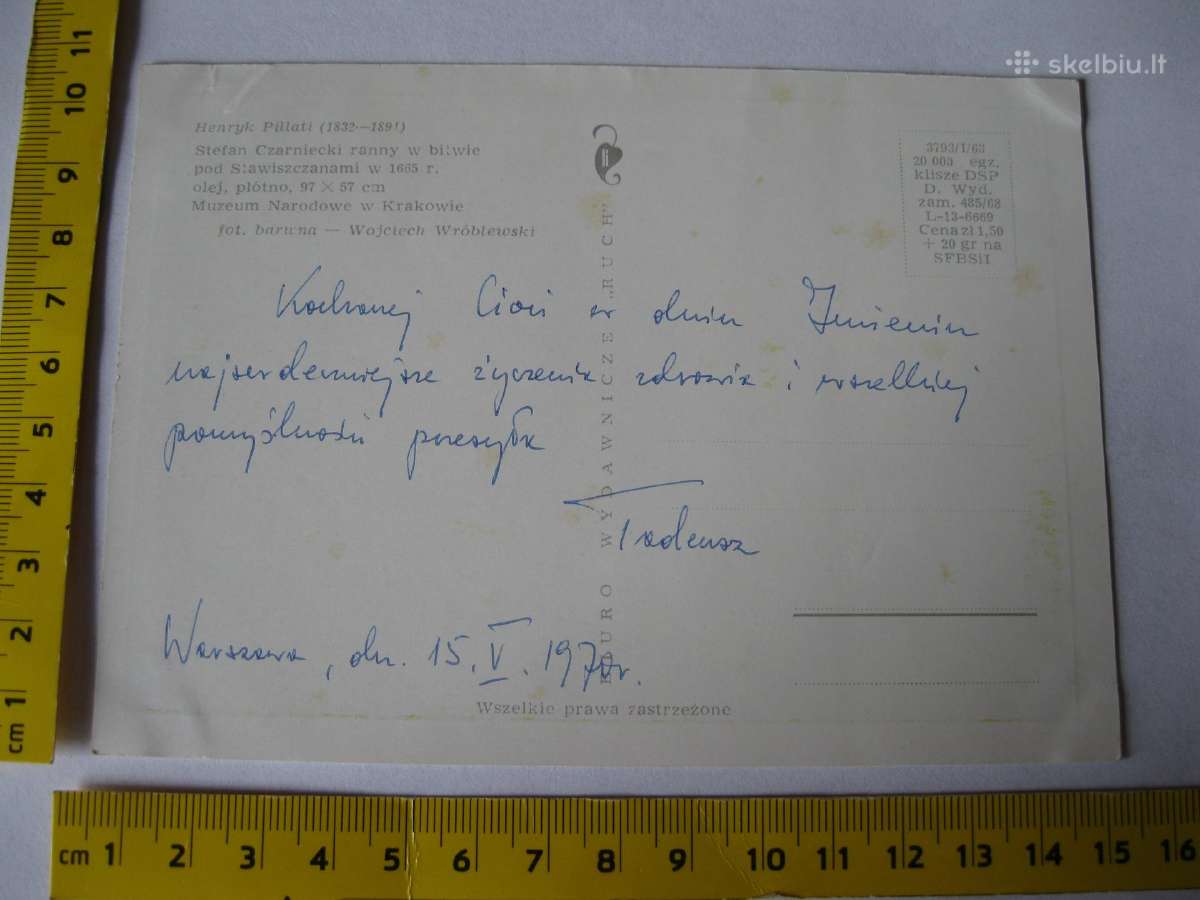 skelbiu.lt
Henryk Pillati (1832—1891)
Stefan Czarniecki ranny w bitwie
pod Stawiszczanami w 1665 r.
olej, płótno, 97 × 57 cm
Muzeum Narodowe w Krakowie
fot. barwna — Wojciech Wróblewski
3793/I/63
20 000 egz.
klisze DSP
D. Wyd.
zam. 485/68
L-13-6669
Cena zł 1,50
+ 20 gr na
SFBSiI
BIURO WYDAWNICZE „RUCH"
Kochanej Cioci w dniu Imienin
najserdeczniejsze życzenia zdrowia i wszelkiej
pomyślności przesyła
Tadeusz
Warszawa, dn. 15.V.1970r.
Wszelkie prawa zastrzeżone
cm 1 2 3 4 5 6 7 8 9 10 11
cm 1 2 3 4 5 6 7 8 9 10 11 12 13 14 15 16